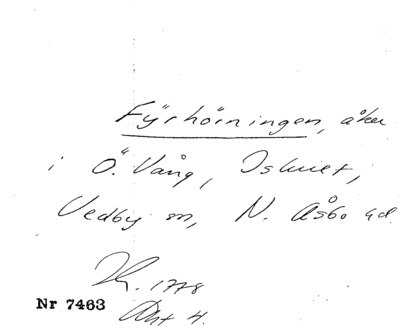 Fyrhörningen, åker
i Ö. Vång,
Vedby sn, N. Åsbo hd
1778
Nr 7463
Akt 4.